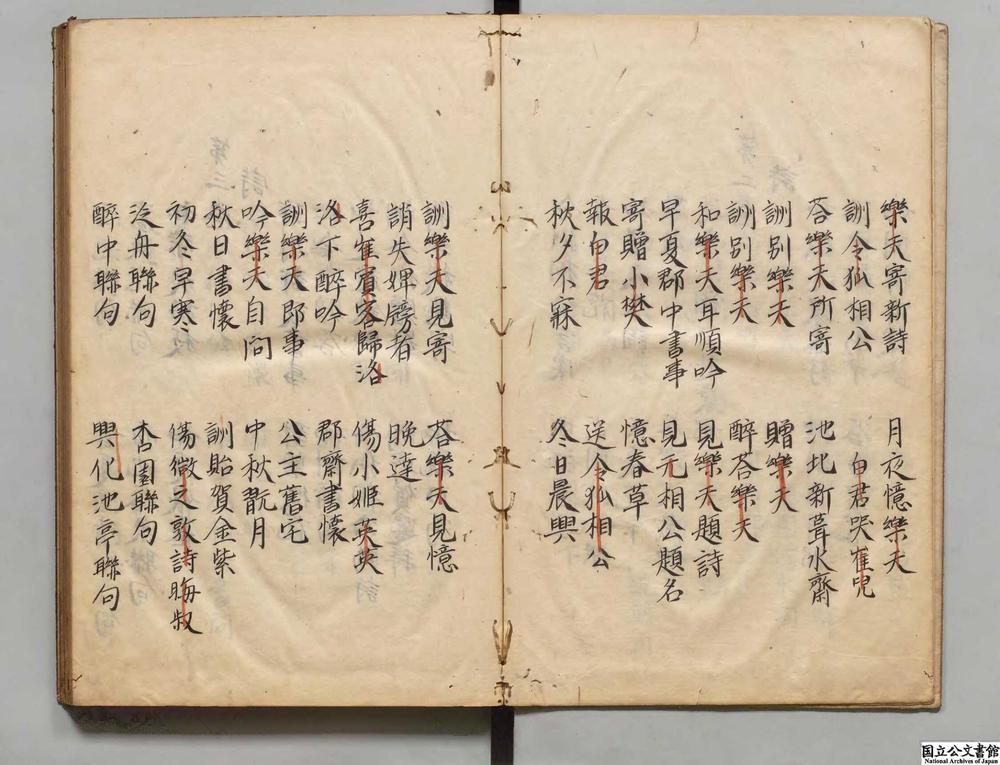 樂天寄新詩　月夜憶樂天
詶令狐相公　白君哭崔兒
荅樂天所寄　池北新葺水齋
詶别樂天　贈樂天
詶别樂天　醉荅樂天
和樂天耳順吟　見樂天題詩
早夏郡中書事　見元相公題名
寄贈小樊　憶春草
報白君　送令狐相公
秋夕不寐　冬日晨興
詶樂天見寄　荅樂天見憶
誚失婢牓者　晚達
喜崔賓客歸洛　傷小姬英英
洛下醉吟　郡齋書懷
詶樂天郎事　公主舊宅
吟樂天自問　中秋翫月
秋日書懷　詶貽賀金紫
初冬早寒　傷微之敦詩晦叔
泛舟聯句　杏園聯句
醉中聯句　興化池亭聯句
国立公文書館
National Archives of Japan